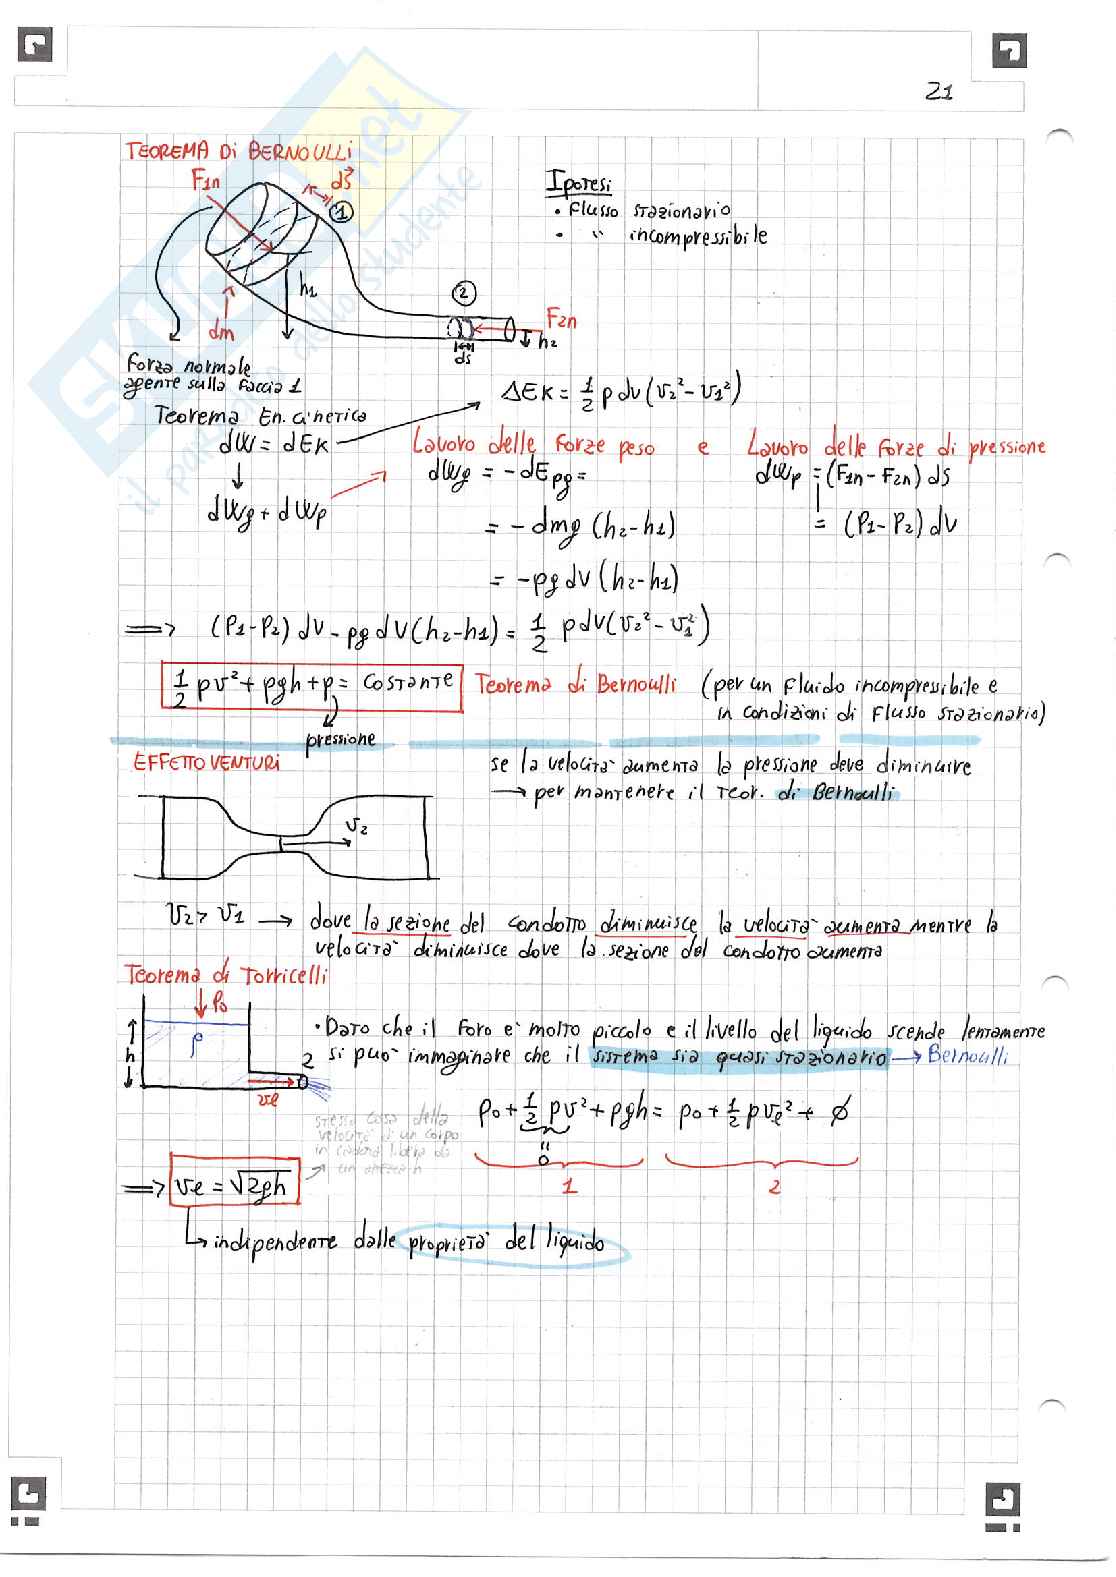 21
TEOREMA Di BERNOULLI
F1n
ds
1
Ipotesi
• Flusso stazionario
• " incompressibile
h1
2
dm
F2n
h2
ds
Forza normale
agente sulla faccia 1
ΔEk = 1/2 ρ dv (v2² - v1²)
Teorema En. cinetica
dW = dEk
Lavoro delle Forze peso e Lavoro delle Forze di pressione
dWg = - dEpg =
dWp = (F1n - F2n) ds
dWg + dWp
= - dmg (h2 - h1)
= (P1 - P2) dV
= - ρg dV (h2 - h1)
=> (P1 - P2) dV - ρg dV (h2 - h1) = 1/2 ρ dV (v2² - v1²)
1/2 ρv² + ρgh + p = costante Teorema di Bernoulli (per un Fluido incompressibile e
in condizioni di Flusso stazionario)
pressione
EFFETTO VENTURi
se la velocità aumenta la pressione deve diminuire
→ per mantenere il Teor. di Bernoulli
v2
v2 > v1 → dove la sezione del condotto diminuisce la velocità aumenta mentre la
velocità diminuisce dove la sezione del condotto aumenta
Teorema di Torricelli
P0
h
ρ
2
ve
• Dato che il Foro è molto piccolo e il livello del liquido scende lentamente
si può immaginare che il sistema sia quasi stazionario → Bernoulli
p0 + 1/2 ρv² + ρgh = p0 + 1/2 ρve² + ∅
"
0
1
2
stessa cosa della
velocità di un corpo
in caduta libera da
un altezza h
=> ve = √2gh
↳ indipendente dalle proprietà del liquido
SKUOLA.net
il paradiso dello studente